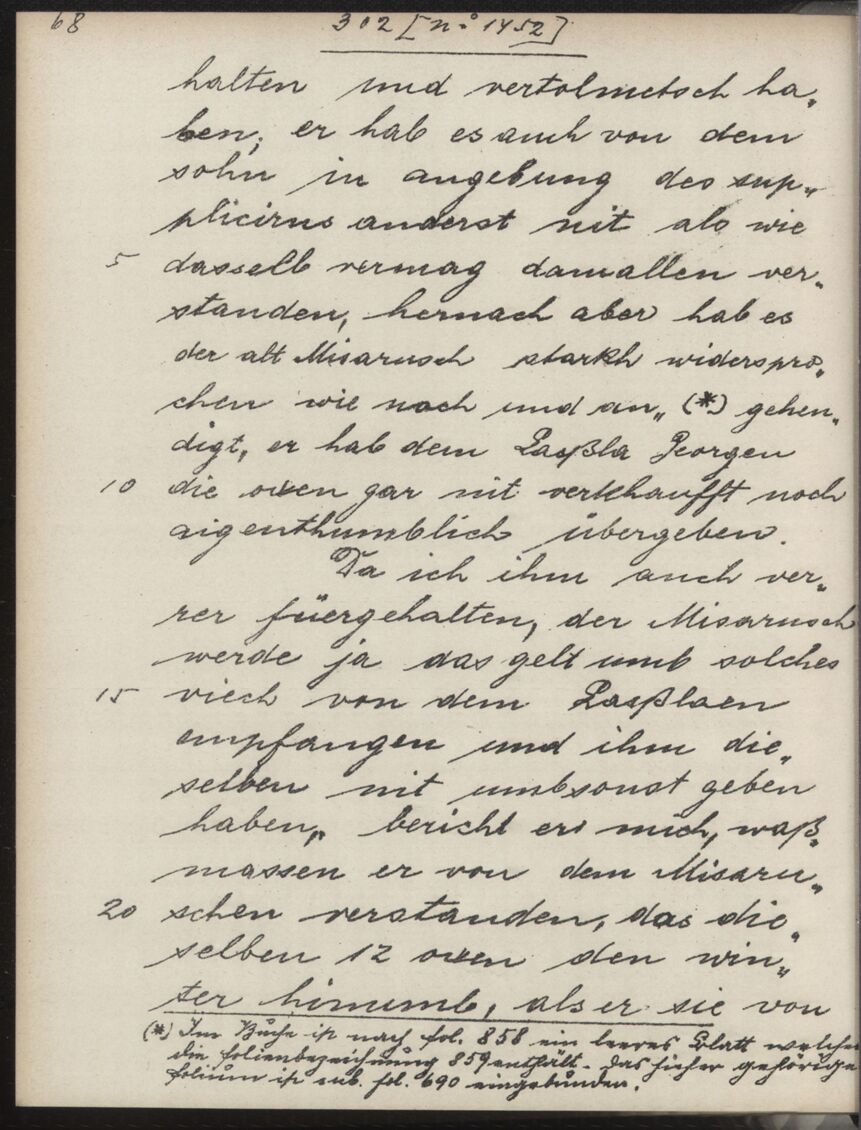 68
302 [n.° 1452]
halten und vertolmetsch ha„
ben; er hab es auch von dem
sohn in angebung des sup„
plicirns anderst nit als wie
5 dasselb vermag damallen ver„
standen, hernach aber hab es
der alt Misarusch starkh widerspro„
chen wie noch und an„ (*) gehen„
digt, er hab dem Laßla Georgen
10 die oxen gar nit verkhaufft noch
aigenthumblich übergeben.
Da ich ihm auch ver„
rer füergehalten, der Misarusch
werde ja das gelt umb solches
15 viech von dem Laßlaen
empfangen und ihm die„
selben nit umbsonst geben
haben, bericht er mich, waß„
massen er von dem Misaru„
20 schen verstanden, das die„
selben 12 oxen den win„
ter hinumb, als er sie von
(*) Im Buche ist nach fol. 858 ein leeres Blatt welches
die folienbezeichnung 859 enthält. Das hieher gehörige
folium ist sub. fol. 690 eingebunden.